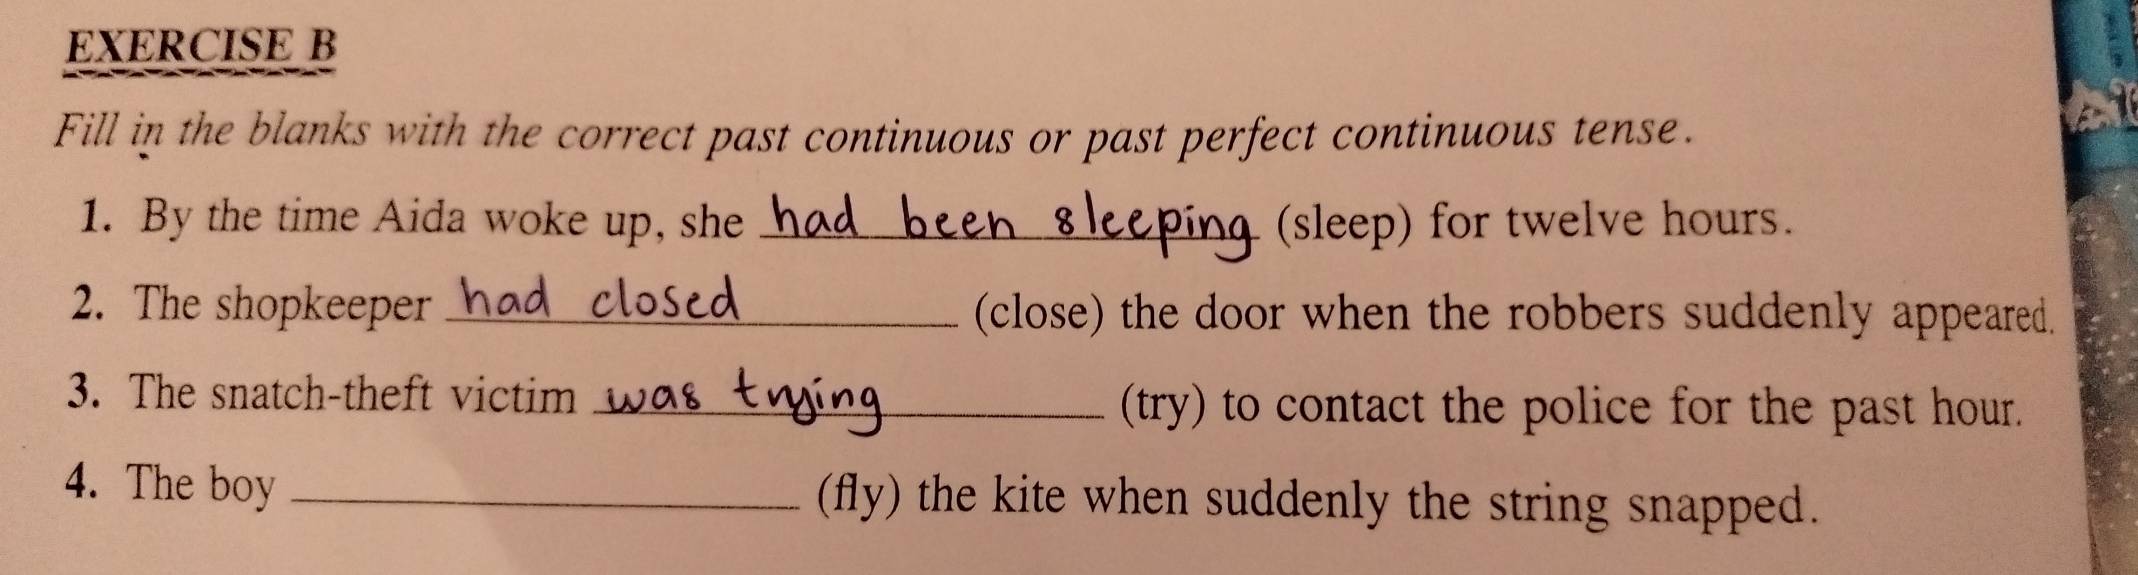 EXERCISE B
Fill in the blanks with the correct past continuous or past perfect continuous tense.
1. By the time Aida woke up, she had been sleeping (sleep) for twelve hours.
2. The shopkeeper had closed (close) the door when the robbers suddenly appeared.
3. The snatch-theft victim was trying (try) to contact the police for the past hour.
4. The boy ____________ (fly) the kite when suddenly the string snapped.